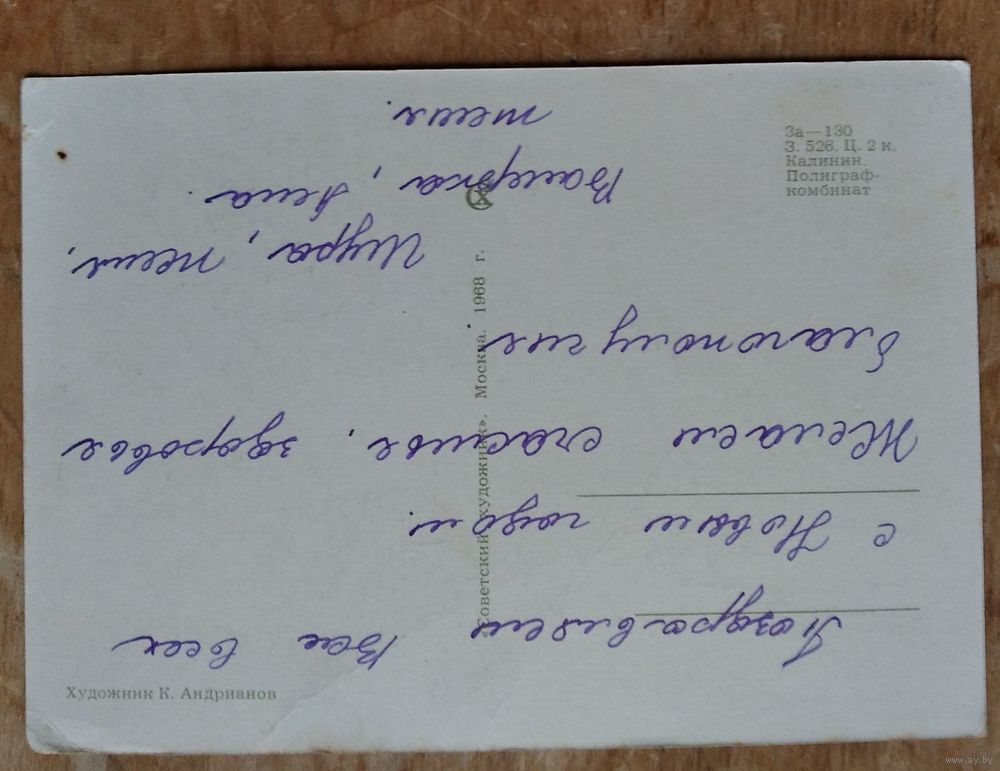 За—130
З. 526. Ц. 2 к.
Калинин.
Полиграф-
комбинат
«Советский художник». Москва. 1968 г.
Художник К. Андрианов
Поздравляем Вас всех
с Новым годом.
Желаем счастья, здоровья
благополучия.
Шура, тетя,
Валерка, Лена.
www.ay.by